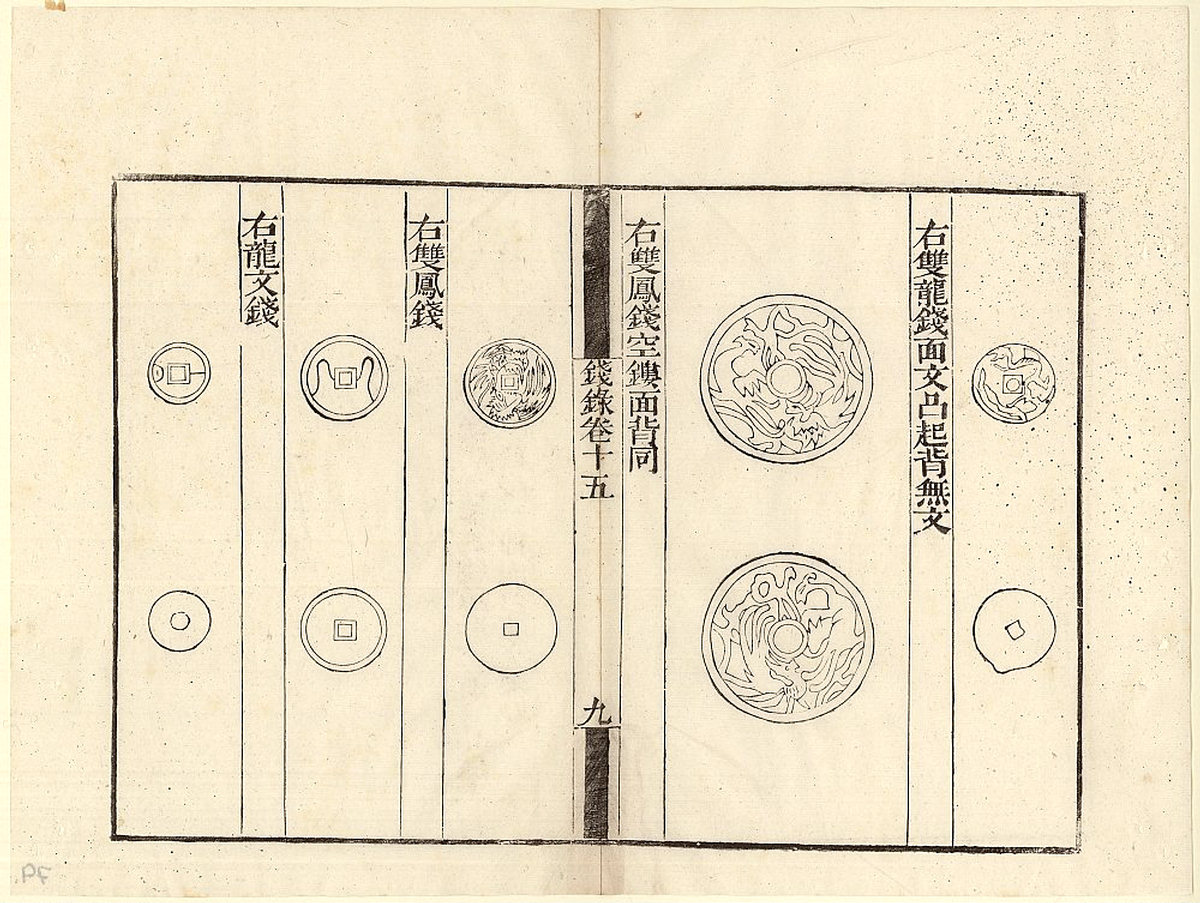 右雙龍錢面文凸起背無文
右雙鳳錢空鏤面背同
錢錄卷十五
九
右雙鳳錢
右龍文錢